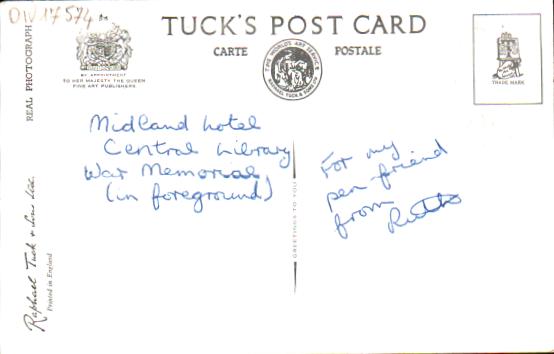 DW17574
TUCK'S POST CARD
CARTE POSTALE
REAL PHOTOGRAPH
BY APPOINTMENT
TO HER MAJESTY THE QUEEN
FINE ART PUBLISHERS
THE WORLD'S ART SERVICE
RAPHAEL TUCK & SONS LTD
TRADE MARK
Midland hotel
Central Library
War Memorial
(in foreground)
For my
pen-friend
from
Ruth
GREETINGS TO YOU
Raphael Tuck & Sons Ltd.
Printed in England